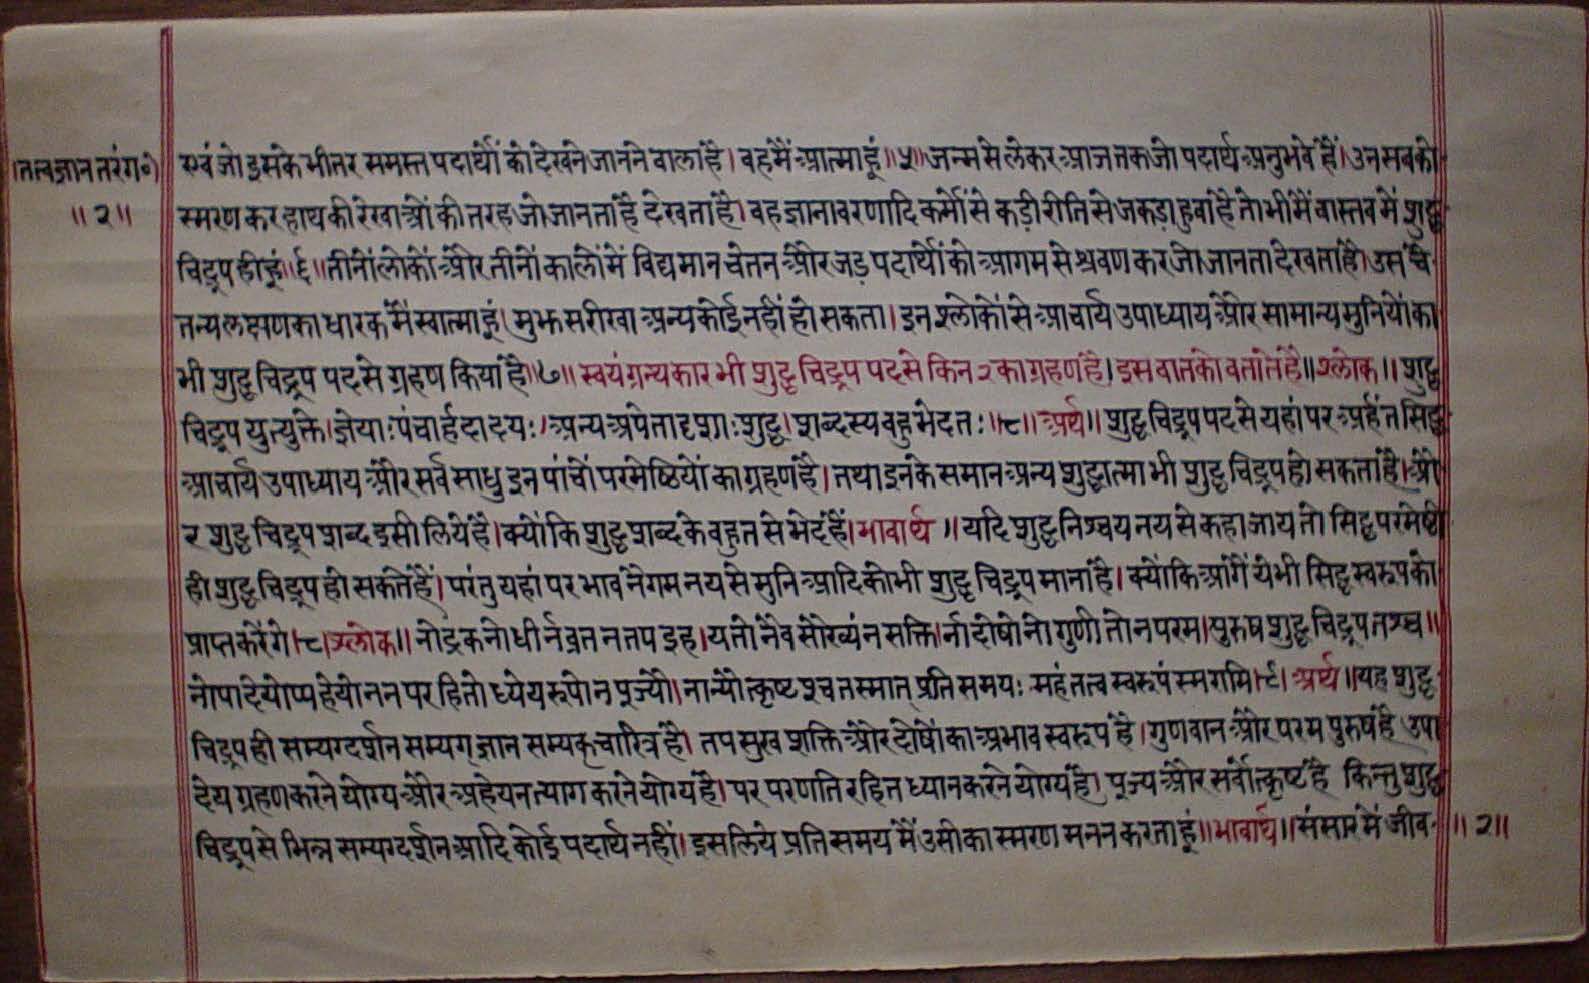 ।तत्वज्ञान तरंग०।
॥२॥
एवं जो इसके भीतर समस्त पदार्थों को देखने जानने वाला है। वह मैं आत्मा हूं॥५॥ जन्म से लेकर आज तक जो पदार्थ अनुभवे हैं। उन सबको
स्मरण कर हाथ की रेखाओं की तरह जो जानता है देखता है। वह ज्ञानावरणादि कर्मों से कड़ी रीति से जकड़ा हुवा है तो भी मैं वास्तव में शुद्ध
चिद्रूप ही हूं॥६॥ तीनों लोकों और तीनों कालों में विद्यमान चेतन और जड़ पदार्थों को आगम से श्रवण कर जो जानता देखता है। उस चै-
तन्य लक्षण का धारक मैं स्वात्मा हूं। मुझ सरीखा अन्य कोई नहीं हो सकता। इन श्लोकों से आचार्य उपाध्याय और सामान्य मुनियों का
भी शुद्ध चिद्रूप पद से ग्रहण किया है॥७॥ स्वयं ग्रन्थकार भी शुद्ध चिद्रूप पद से किन २ का ग्रहण है। इस वात को वताते हैं॥ श्लोक॥ शुद्ध
चिद्रूप युत्युक्ते। ज्ञेयाः पंचार्हदादयः। अन्य अपेतादृशाः शुद्ध। शब्दस्य वहु भेदतः॥८॥ अर्थ॥ शुद्ध चिद्रूप पद से यहां पर अर्हंत सिद्ध
आचार्य उपाध्याय और सर्व साधु इन पांचों परमेष्ठियों का ग्रहण है। तथा इनके समान अन्य शुद्धात्मा भी शुद्ध चिद्रूप हो सकता है। औ
र शुद्ध चिद्रूप शब्द इसी लिये है। क्यों कि शुद्ध शब्द के वहुत से भेद हैं। भावार्थ॥ यदि शुद्ध निश्चय नय से कहा जाय तो सिद्ध परमेष्ठी
ही शुद्ध चिद्रूप हो सकते हैं। परंतु यहां पर भाव नैगम नय से मुनि आदि को भी शुद्ध चिद्रूप माना है। क्यों कि आगें ये भी सिद्ध स्वरूप को
प्राप्त करेंगे।८। श्लोक॥ नोद्रक नो धीर्न व्रत न तप इह। यतो नैव सौख्यं न सक्ति। र्ना दोषो नो गुणी तो न परम। पुरुष शुद्ध चिद्रूप तश्च॥
नोपादेयोप्यहेयो नन पर हितो ध्येय रूपो न पूज्यौ। नान्यौत्कृष्टश्च तस्मात् प्रति समयः महं तत्व स्वरूपं स्मरामि।९। अर्थ॥ यह शुद्ध
चिद्रूप ही सम्यग्दर्शन सम्यग् ज्ञान सम्यक् चारित्र है। तप सुख शक्ति और दोषों का अभाव स्वरूप है। गुणवान और परम पुरुष है उपा
देय ग्रहण करने योग्य और अहेय न त्याग करने योग्य है। पर परणति रहित ध्यान करने योग्य है। पूज्य और सर्वोत्कृष्ट है किन्तु शुद्ध
चिद्रूप से भिन्न सम्यग्दर्शन आदि कोई पदार्थ नहीं। इसलिये प्रति समय मैं उसी का स्मरण मनन करता हूं॥ भावार्थ॥ संसार में जीव-
॥२॥